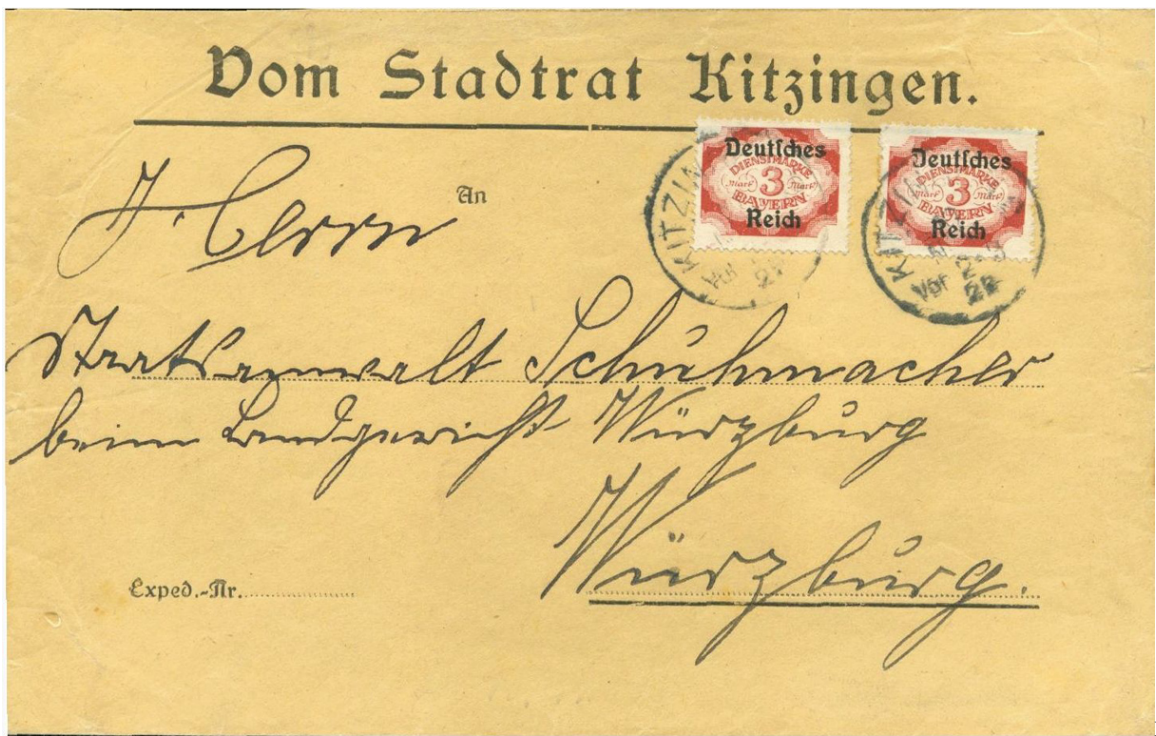 Vom Stadtrat Kitzingen.
Deutsches
DIENSTMARKE
Mark 3 Mark
BAYERN
Reich
Deutsches
DIENSTMARKE
Mark 3 Mark
BAYERN
Reich
KITZIN
KITZIN
Vor
22
An
Herrn
Staatsanwalt Schuhmacher
beim Landgericht Würzburg
Würzburg.
Exped.-Nr.